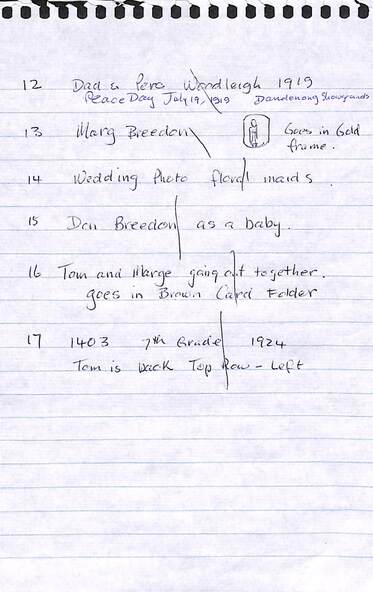 12 Dad & Perc Woodleigh 1919
Peace Day July 19, 1919 Dandenong Showgrounds
13 Marg Breedon Goes in Gold
frame.
14 Wedding Photo floral maids.
15 Don Breedon as a baby.
16 Tom and Marge going out together.
goes in Brown Card Folder
17 1403 7th Grade 1924
Tom is back Top Row - Left